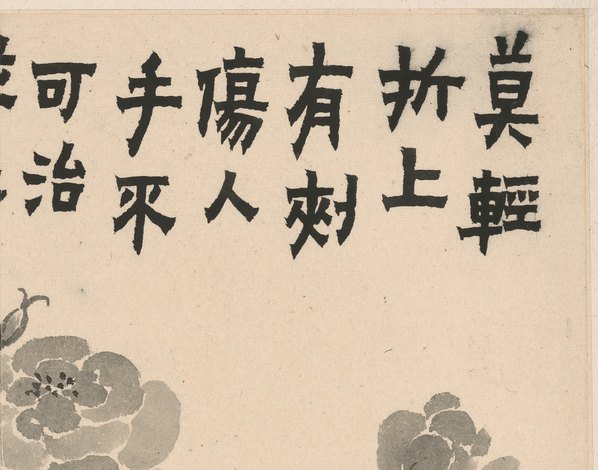 莫輕
折上
有刾
傷人
手不
可治